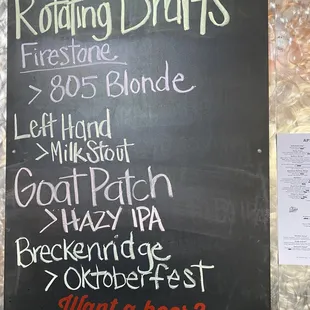 Rotating Drafts
Firestone
> 805 Blonde
Left Hand
> Milk Stout
Goat Patch
> HAZY IPA
Breckenridge
> Oktoberfest
Want a beer?